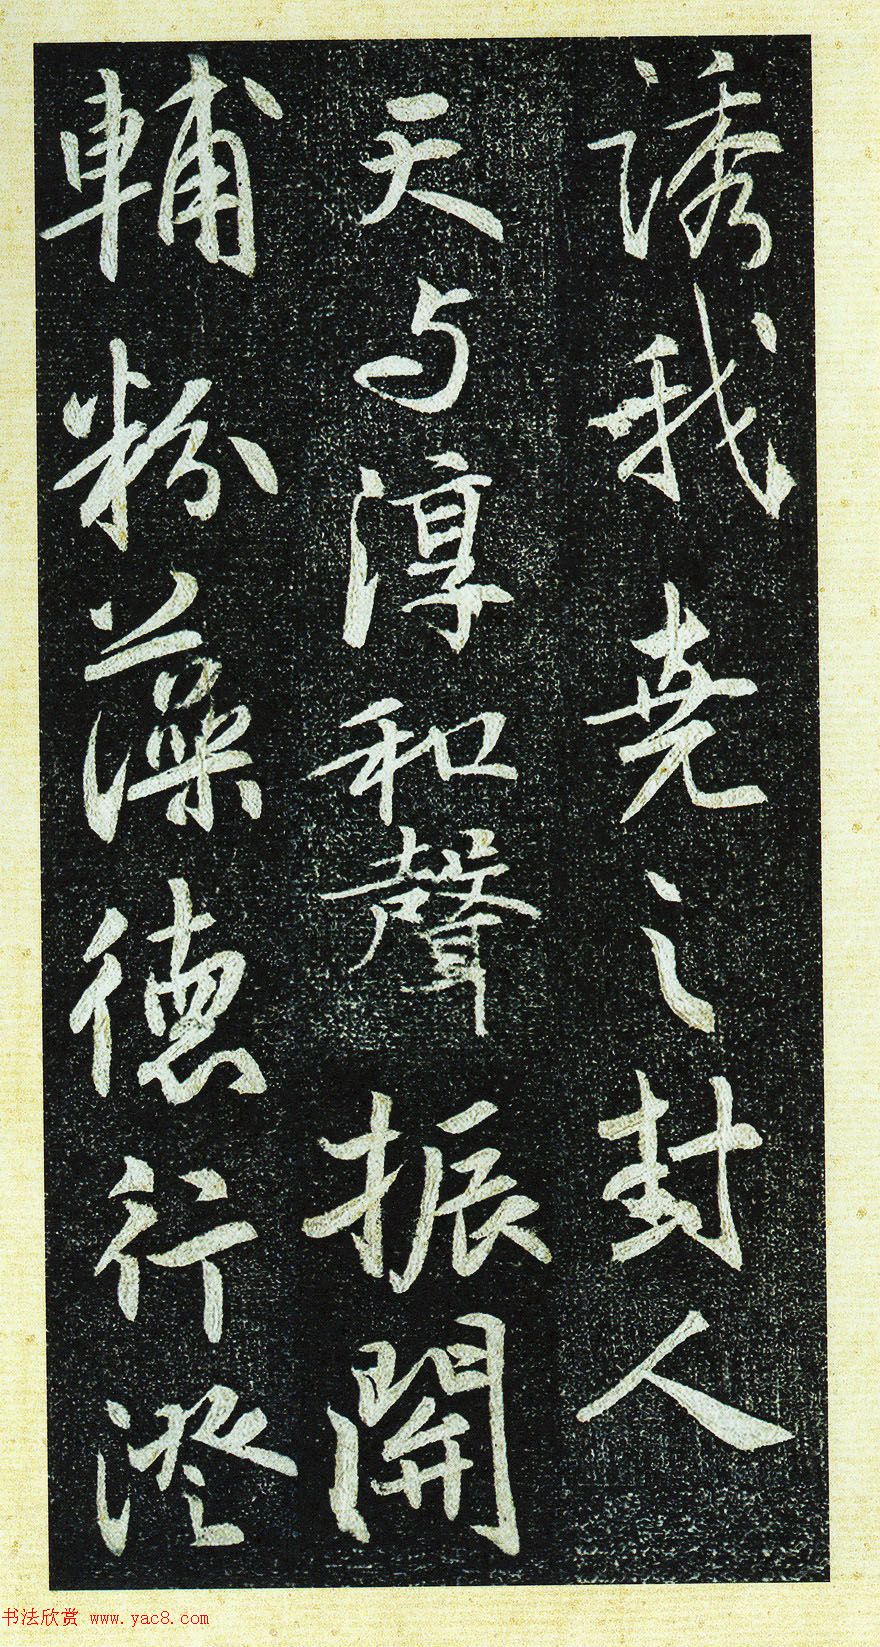 誘我堯之封人
天与淳和聲振開
輔粉藻德行澄
书法欣赏 www.yac8.com